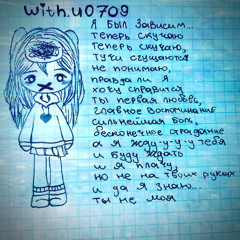 with.u0709
Я БЫЛ Зависим...
теперь скучаю
теперь скучаю,
тучи сгущаются
не понимаю,
правда ли я
хочу справится
ты первая любовь,
главное воспоминание
сильнейшая боль,
бесконечное страдание
а я жду-у-у-у тебя
и буду ждать
и я плачу,
но не на твоих руках
и да я знаю...
ты не моя